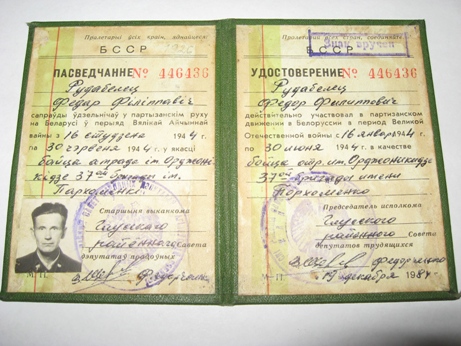 Пралетарыі ўсіх краін, яднайцеся!
БССР
1926
ПАСВЕДЧАННЕ № 446436
Рудабелец
Федар Філіппавіч
сапраўды ўдзельнічаў у партызанскім руху
на Беларусі ў перыяд Вялікай Айчыннай
вайны з 16 студзеня 1944
па 30 чэрвеня 1944 г. у якасці
байца атрада ім. Орджонікідзе
37ой брыгады ім.
Пархоменкі
Старшыня выканкома
Глускага
раённага Савета
дэпутатаў працоўных
М. П.
Федорченко
Пролетарии всех стран, соединяйтесь!
БССР
Знак вручен
УДОСТОВЕРЕНИЕ № 446436
Рудабелец
Федор Филиппович
действительно участвовал в партизанском
движении в Белоруссии в период Великой
Отечественной войны с 16 января 1944
по 30 июня 1944 г. в качестве
бойца отр. им. Орджоникидзе
37ой бригады имени
Пархоменко
Председатель исполкома
Глусского
районного Совета
депутатов трудящихся
Федорченко
М. П. 19 декабря 198